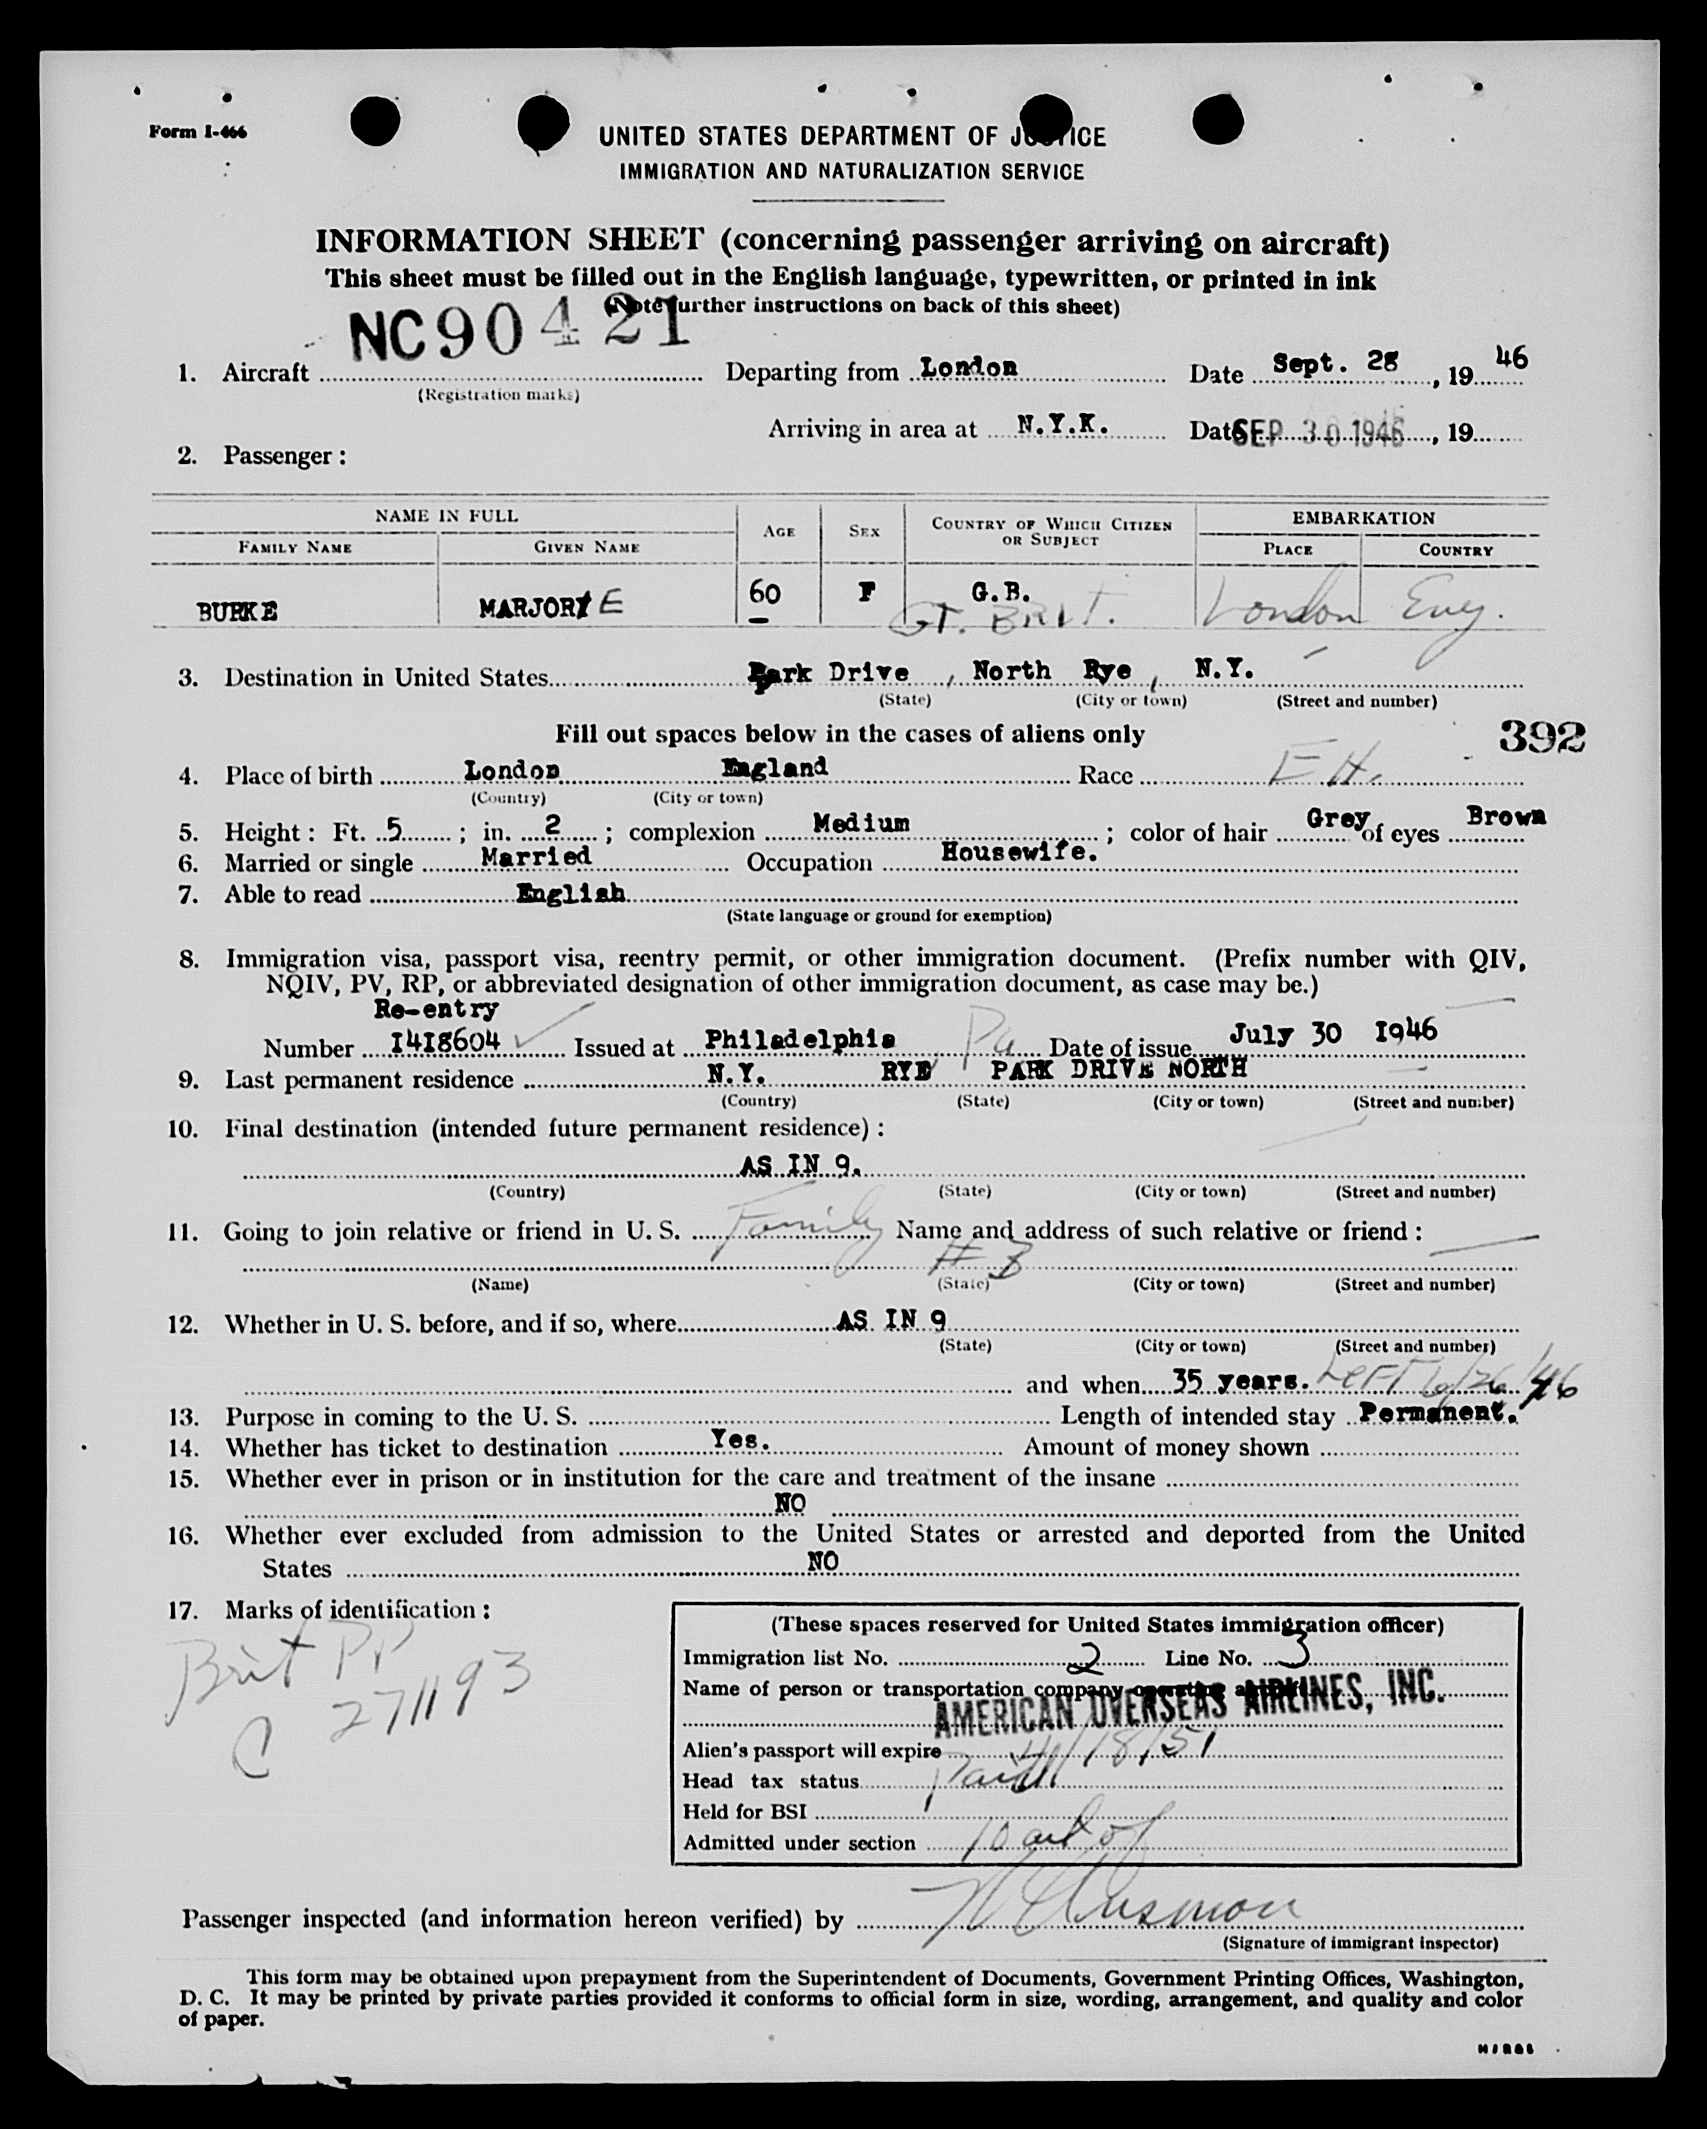 Form I-466
UNITED STATES DEPARTMENT OF JUSTICE
IMMIGRATION AND NATURALIZATION SERVICE
INFORMATION SHEET (concerning passenger arriving on aircraft)
This sheet must be filled out in the English language, typewritten, or printed in ink
(Note further instructions on back of this sheet)
1. Aircraft NC90421 Departing from London Date Sept. 28, 1946
(Registration marks)
Arriving in area at N.Y.K. Date SEP 30 1946, 19
2. Passenger:
NAME IN FULL EMBARKATION
FAMILY NAME GIVEN NAME AGE SEX COUNTRY OF WHICH CITIZEN OR SUBJECT PLACE COUNTRY
BURKE MARJORIE 60 F G.B. London Eng.
GT. BRIT.
3. Destination in United States Park Drive, North Rye, N.Y.
(State) (City or town) (Street and number)
Fill out spaces below in the cases of aliens only
392
4. Place of birth London England Race EH.
(Country) (City or town)
5. Height: Ft. 5; in. 2; complexion Medium; color of hair Grey of eyes Brown
6. Married or single Married Occupation Housewife.
7. Able to read English
(State language or ground for exemption)
8. Immigration visa, passport visa, reentry permit, or other immigration document. (Prefix number with QIV,
NQIV, PV, RP, or abbreviated designation of other immigration document, as case may be.)
Re-entry
Number I4I8604 Issued at Philadelphia, Pa. Date of issue July 30 I946
9. Last permanent residence N.Y. RYE PARK DRIVE NORTH
(Country) (State) (City or town) (Street and number)
10. Final destination (intended future permanent residence):
AS IN 9.
(Country) (State) (City or town) (Street and number)
11. Going to join relative or friend in U. S. Family Name and address of such relative or friend:
#3
(Name) (State) (City or town) (Street and number)
12. Whether in U. S. before, and if so, where AS IN 9
(State) (City or town) (Street and number)
and when 35 years. Left 6/26/46
13. Purpose in coming to the U. S. Length of intended stay Permanent.
14. Whether has ticket to destination Yes. Amount of money shown
15. Whether ever in prison or in institution for the care and treatment of the insane
NO
16. Whether ever excluded from admission to the United States or arrested and deported from the United
States NO
17. Marks of identification:
Brit PP
C 271193
(These spaces reserved for United States immigration officer)
Immigration list No. 2 Line No. 3
Name of person or transportation company operating aircraft
AMERICAN OVERSEAS AIRLINES, INC.
Alien's passport will expire 4/18/51
Head tax status Paid
Held for BSI
Admitted under section
Passenger inspected (and information hereon verified) by
(Signature of immigrant inspector)
This form may be obtained upon prepayment from the Superintendent of Documents, Government Printing Offices, Washington,
D. C. It may be printed by private parties provided it conforms to official form in size, wording, arrangement, and quality and color
of paper.